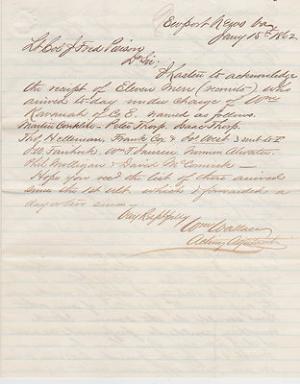 Newport News Va
Jany 15th 1862
Lt Col J Fred Pierson
Dr Sir
I hasten to acknowledge
the receipt of Eleven Men (recruits) who
arrived to-day under charge of Wm
Kavanah of Co E. named as follows.
Martin Conklin - Peter Thorp. Isaac Thorp.
Thos Kelleman, Frank Cox & Co West
Wm Lawson Truman Atwater
Phil Molligan & David McCormick
Hope you recd the list of those arrived
since the 1st ult. which I forwarded a
day or two since
Very Respectfully
Wm Wallace
Acting Adjutant